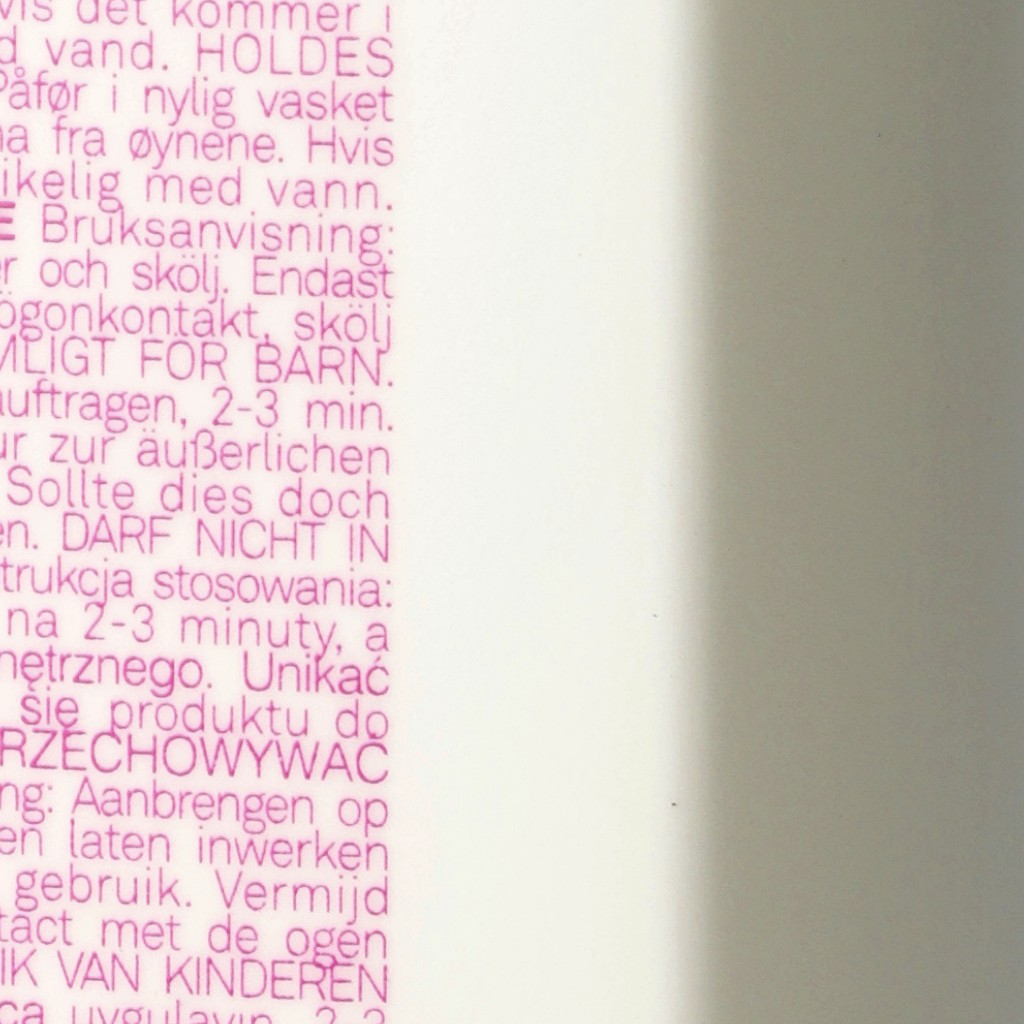 vis det kommer i
d vand. HOLDES
Påfør i nylig vasket
na fra øynene. Hvis
ikelig med vann.
E Bruksanvisning:
er och skölj. Endast
ögonkontakt, skölj
MLIGT FÖR BARN.
auftragen, 2-3 min.
ur zur äußerlichen
Sollte dies doch
en. DARF NICHT IN
trukcja stosowania:
na 2-3 minuty, a
nętrznego. Unikać
się produktu do
RZECHOWYWAĆ
ng: Aanbrengen op
en laten inwerken
gebruik. Vermijd
tact met de ogen
IK VAN KINDEREN
ca uygulayın, 2-3